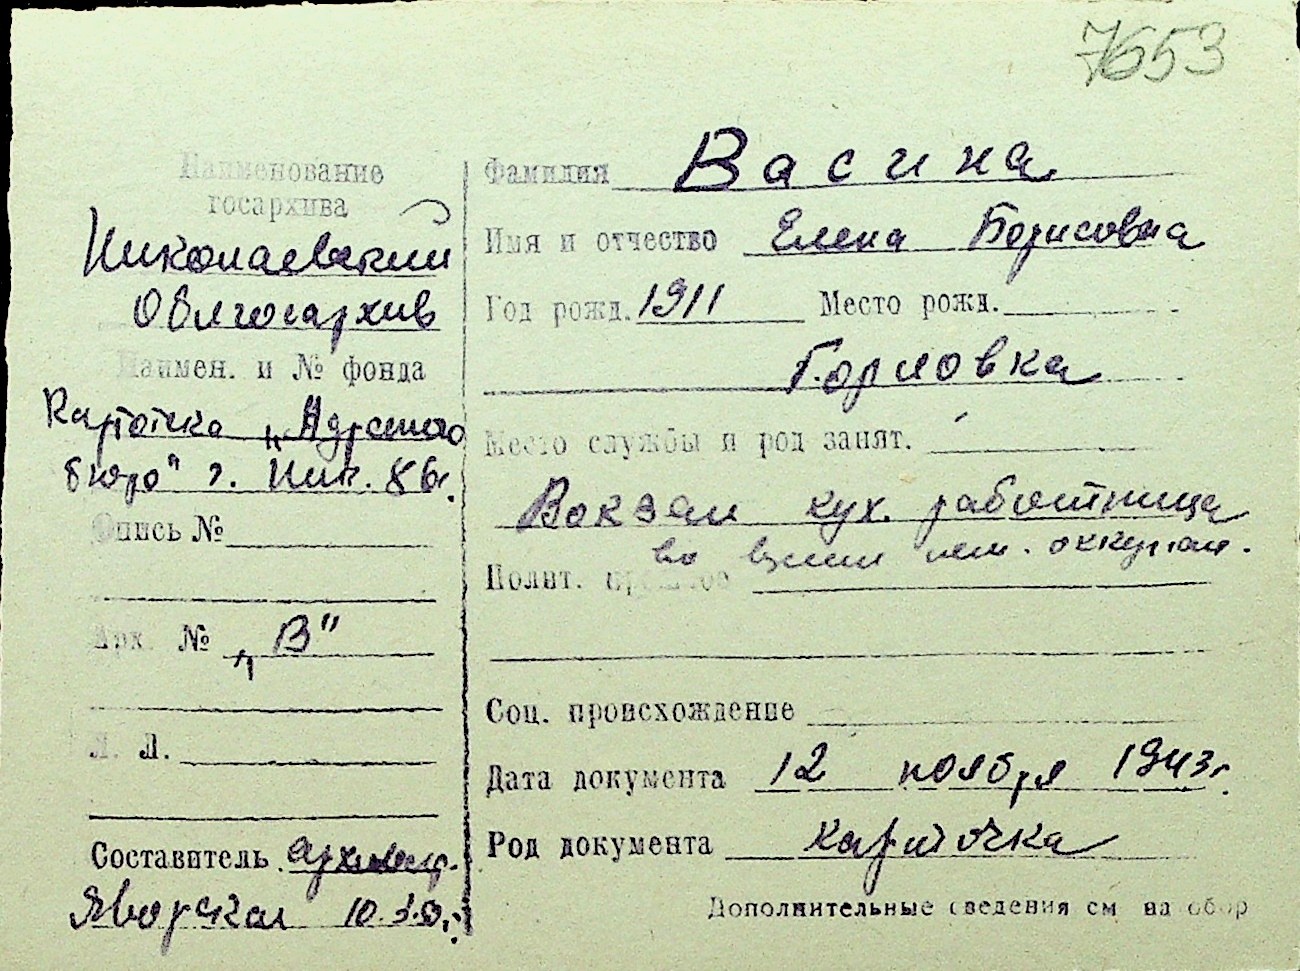 7653
Наименование
госархива
Николаевский
Облгосархив
Наимен. и № фонда
Картотека „Адресного
бюро" г. Ник.
Опись №
Арх. № „В"
Л. Л.
Составитель архивар.
Яворская 10.
Фамилия Васина
Имя и отчество Елена Борисовна
Год рожд. 1911 Место рожд.
Горловка
Место службы и род занят.
Вокзал кух. работница
во время нем. оккупац.
Полит. прошлое
Соц. происхождение
Дата документа 12 ноября 1943 г.
Род документа карточка
Дополнительные сведения см на обор